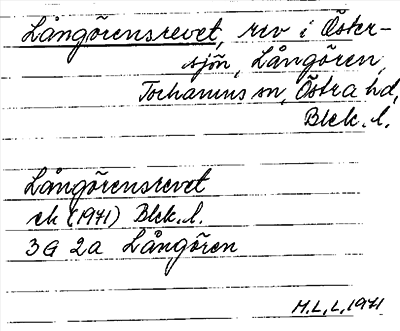 Långörensrevet, rev i Öster-
sjön, Långören,
Torhamns sn, Östra hd,
Blek. l.
Långörensrevet
ek (1971) Blek. l.
3G 2a Långören
M.L., L, 1971